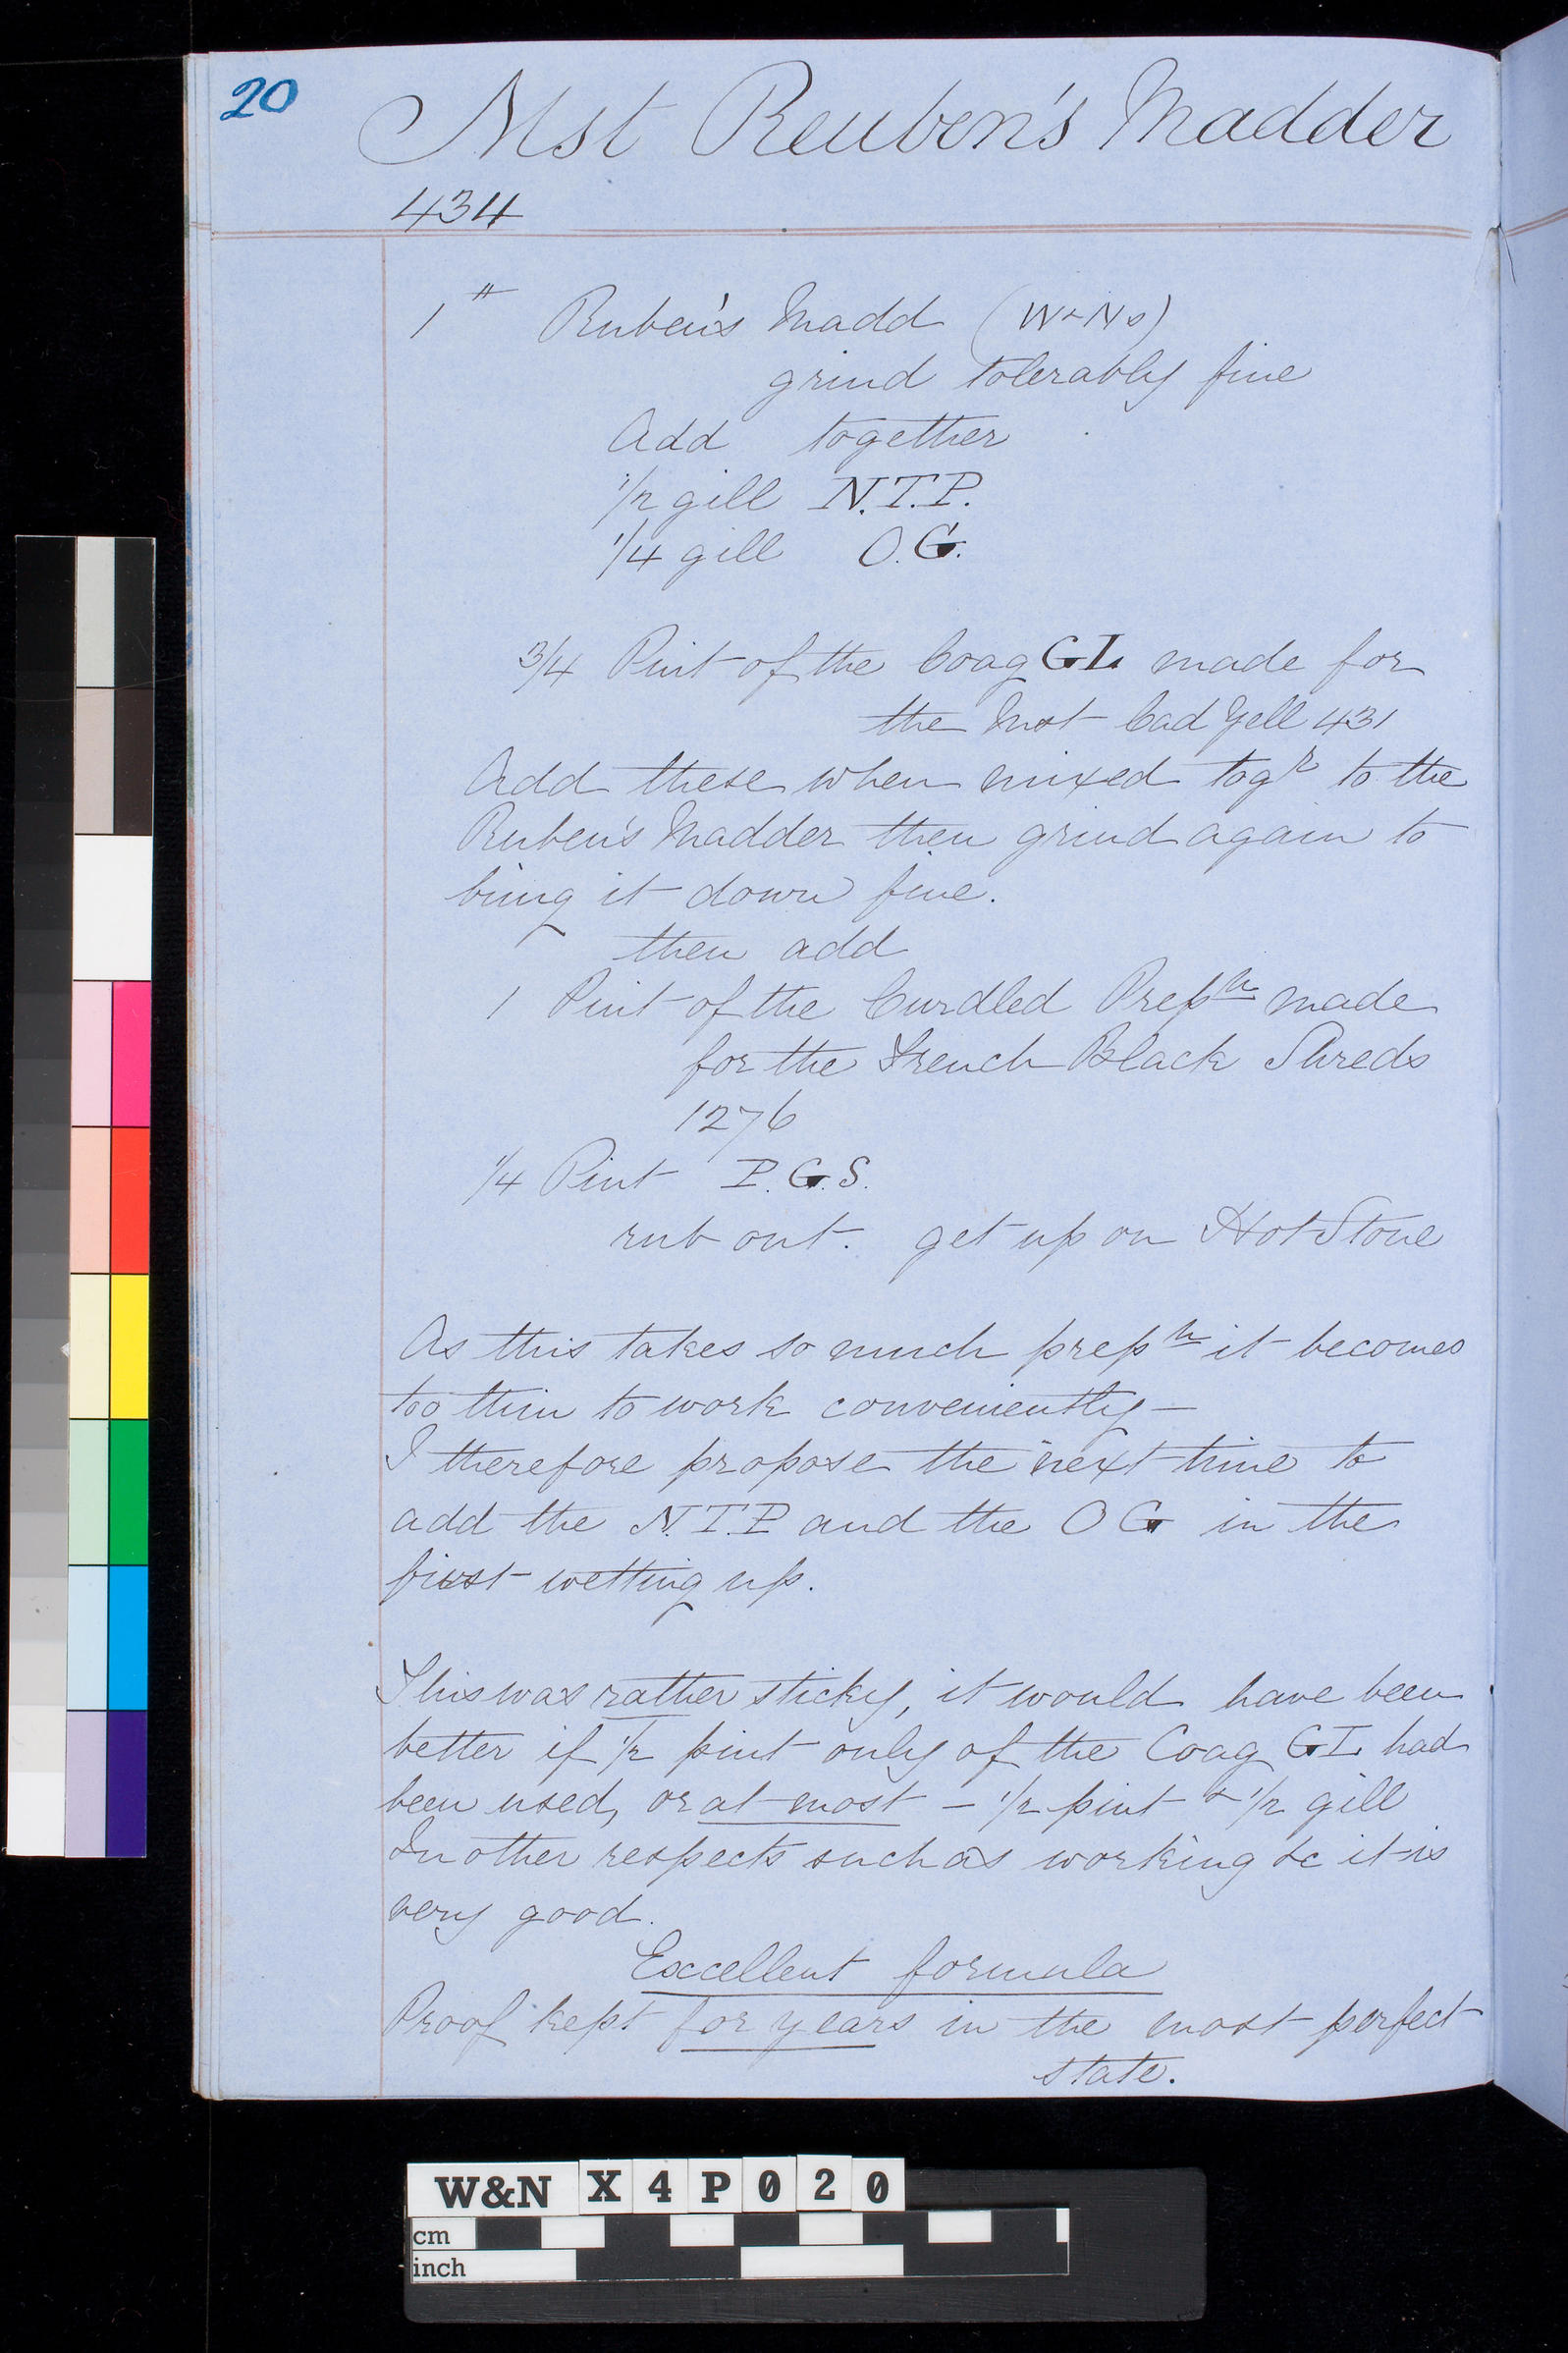 20
Mst Reuben's Madder
434
1 # Ruben's Madd (W & Ns)
grind tolerably fine
Add together
1/2 gill N.T.P.
1/4 gill O.G.
3/4 Pint of the Coag GL made for
the Mst Cad Yell 431
Add these when mixed togr to the
Ruben's Madder then grind again to
bring it down fine.
then add
1 Pint of the Curdled Prepn made
for the French Black Shreds
1276
1/4 Pint P.G.S.
rub out. get up on Hot Stone
As this takes so much prepn it becomes
too thin to work conveniently —
I therefore propose the next time to
add the N.T.P and the O G in the
first wetting up.
This was rather sticky, it would have been
better if 1/2 pint only of the Coag GL had
been used, or at most — 1/2 pint & 1/2 gill
In other respects such as working &c it is
very good.
Excellent formula
Proof kept for years in the most perfect
state.
W&N X4P020
cm
inch